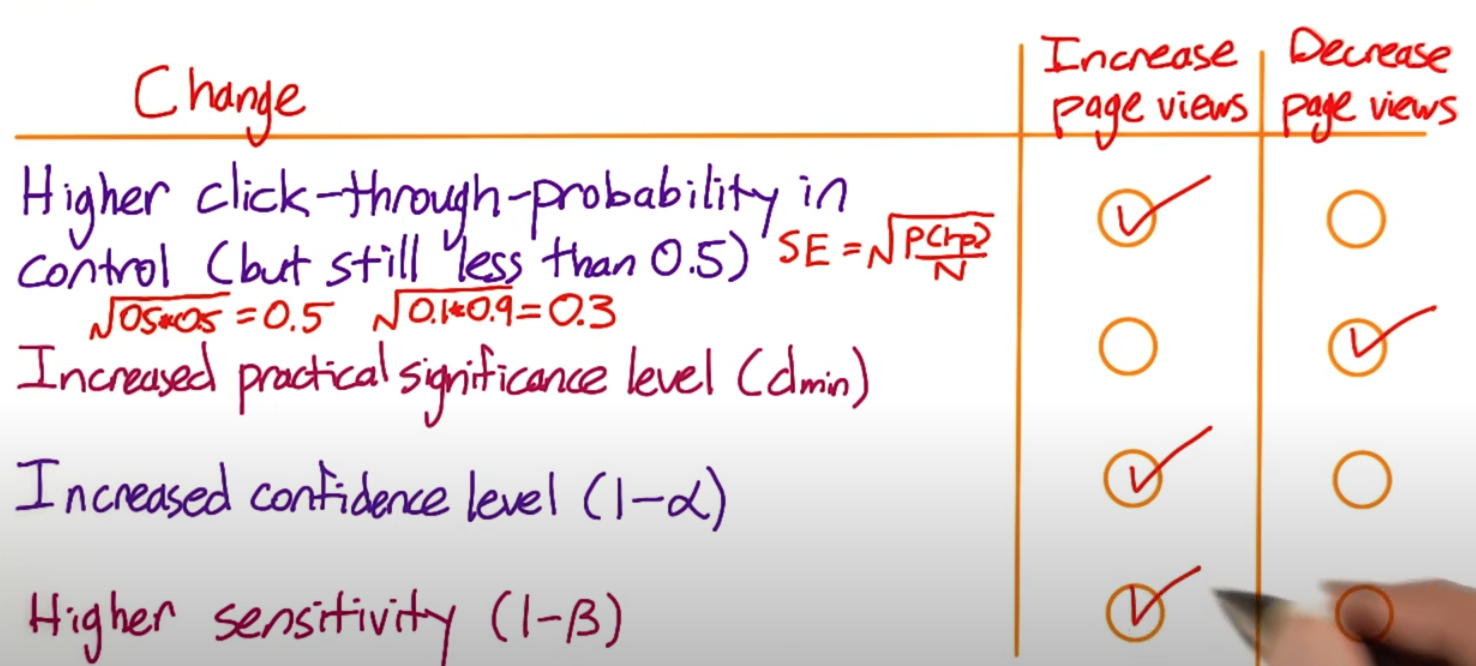 Change
Increase page views
Decrease page views
Higher click-through-probability in
control (but still less than 0.5) SE = √P(1-p)/N
√0.5*0.5 = 0.5 √0.1*0.9 = 0.3
Increased practical significance level (dmin)
Increased confidence level (1-α)
Higher sensitivity (1-β)